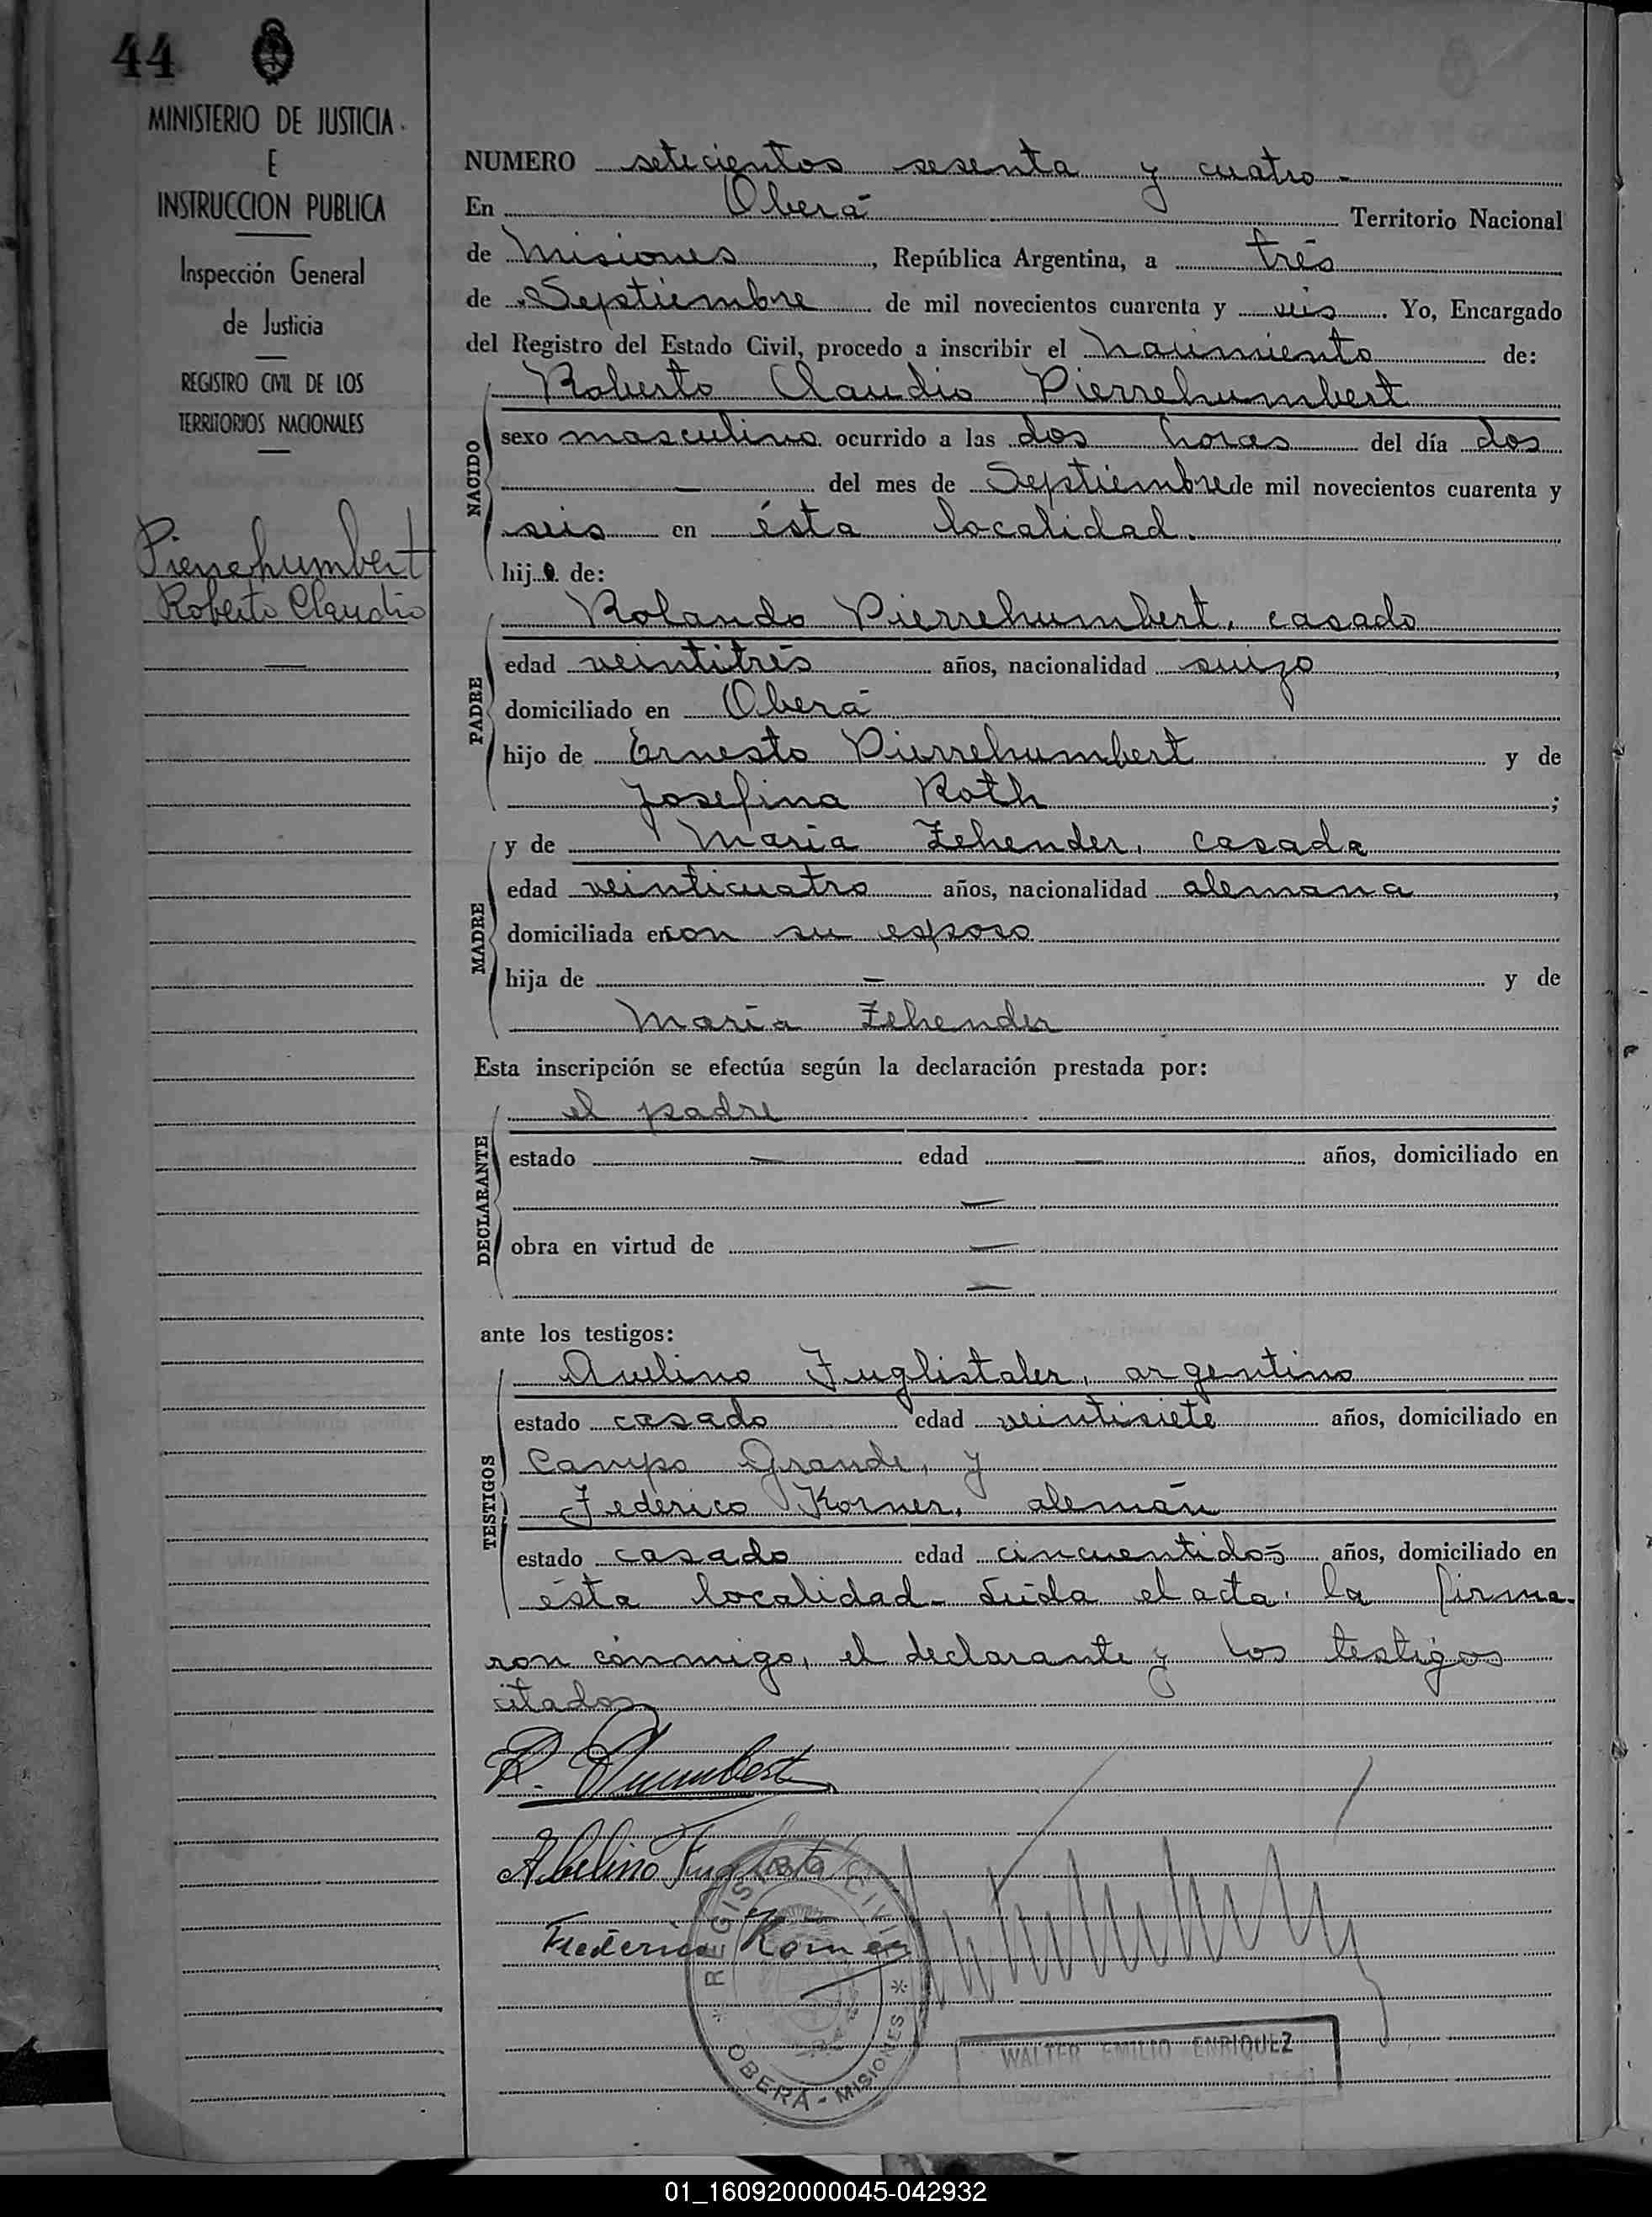 44
MINISTERIO DE JUSTICIA
E
INSTRUCCION PUBLICA
Inspección General
de Justicia
REGISTRO CIVIL DE LOS
TERRITORIOS NACIONALES
Pierrehumbert
Roberto Claudio
NUMERO setecientos sesenta y cuatro -
En Oberá Territorio Nacional
de Misiones, República Argentina, a trés
de Septiembre de mil novecientos cuarenta y seis. Yo, Encargado
del Registro del Estado Civil, procedo a inscribir el nacimiento de:
NACIDO
Roberto Claudio Pierrehumbert
sexo masculino ocurrido a las dos horas del día dos
— del mes de Septiembre de mil novecientos cuarenta y
seis en ésta localidad.
hijo de:
PADRE
Rolando Pierrehumbert, casado
edad veintitrés años, nacionalidad suizo,
domiciliado en Oberá
hijo de Ernesto Pierrehumbert y de
Josefina Roth;
MADRE
y de Maria Zehender, casada
edad veinticuatro años, nacionalidad alemana,
domiciliada en con su esposo
hija de — y de
María Zehender
Esta inscripción se efectúa según la declaración prestada por:
DECLARANTE
el padre
estado — edad — años, domiciliado en
—
obra en virtud de —
—
ante los testigos:
TESTIGOS
Avelino Fuglistaler, argentino
estado casado edad veintisiete años, domiciliado en
Campo Grande, y
Federico Korner, alemán
estado casado edad cincuentidós años, domiciliado en
ésta localidad - Leída el acta, la firma-
ron cónmigo, el declarante y los testigos
citados
R. Phumbert
Abelino
Korner
REGISTRO CIVIL
OBERÁ - MISIONES
WALTER EMILIO ENRIQUEZ
01_160920000045-042932